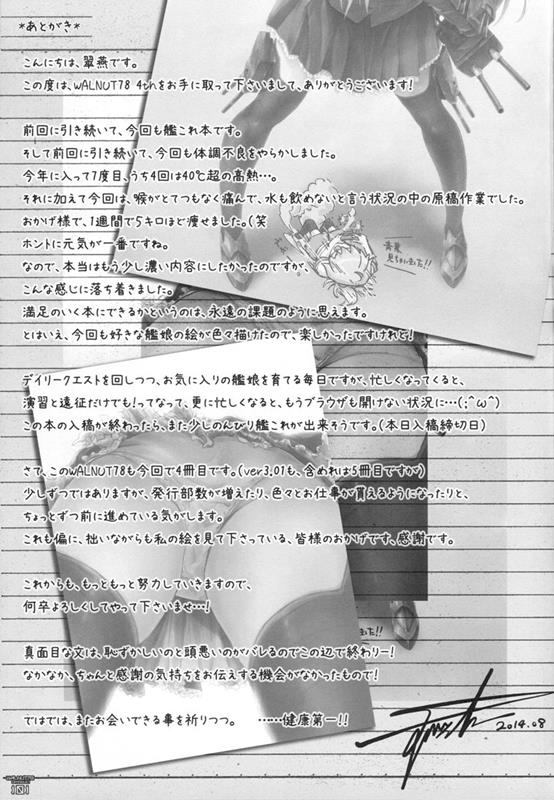 *あとがき*
こんにちは、翠燕です。
この度は、WALNUT78 4thをお手に取って下さいまして、ありがとうございます!
前回に引き続いて、今回も艦これ本です。
そして前回に引き続いて、今回も体調不良をやらかしました。
今年に入って7度目、うち4回は40℃超の高熱…。
それに加えて今回は、喉がとてつもなく痛んで、水も飲めないと言う状況の中の原稿作業でした。
おかげ様で、1週間で5キロほど痩せました。(笑
ホントに元気が一番ですね。
なので、本当はもう少し濃い内容にしたかったのですが、
こんな感じに落ち着きました。
満足のいく本にできるかというのは、永遠の課題のように思えます。
とはいえ、今回も好きな艦娘の絵が色々描けたので、楽しかったですけれど!
青葉
見ちゃいました!!
デイリークエストを回しつつ、お気に入りの艦娘を育てる毎日ですが、忙しくなってくると、
演習と遠征だけでも!ってなって、更に忙しくなると、もうブラウザも開けない状況に…(;^ω^)
この本の入稿が終わったら、また少しのんびり艦これが出来そうです。(本日入稿締切日)
さて、このWALNUT78も今回で4冊目です。(ver3.01も、含めれば5冊目ですが)
少しずつではありますが、発行部数が増えたり、色々とお仕事が貰えるようになったりと、
ちょっとずつ前に進めている気がします。
これも偏に、拙いながらも私の絵を見て下さっている、皆様のおかげです、感謝です。
これからも、もっともっと努力していきますので、
何卒よろしくしてやって下さいませ…!
真面目な文は、恥ずかしいのと頭悪いのがバレるのでこの辺で終わりー!
なかなか、ちゃんと感謝の気持ちをお伝えする機会がなかったもので!
ではでは、またお会いできる事を祈りつつ。 ……健康第一!!
2014.08